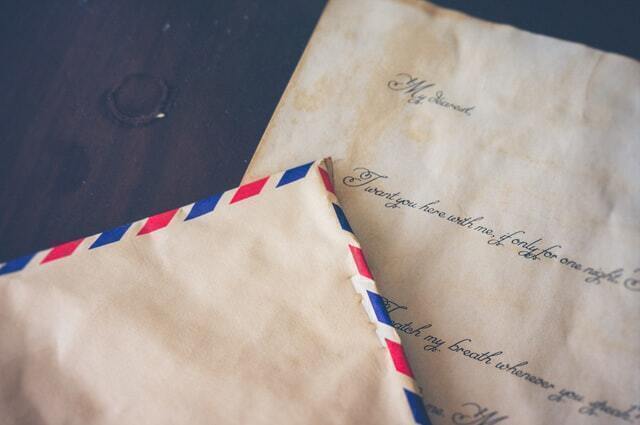 My dearest,
I want you here with me, if only for one night.
catch my breath whenever you speak